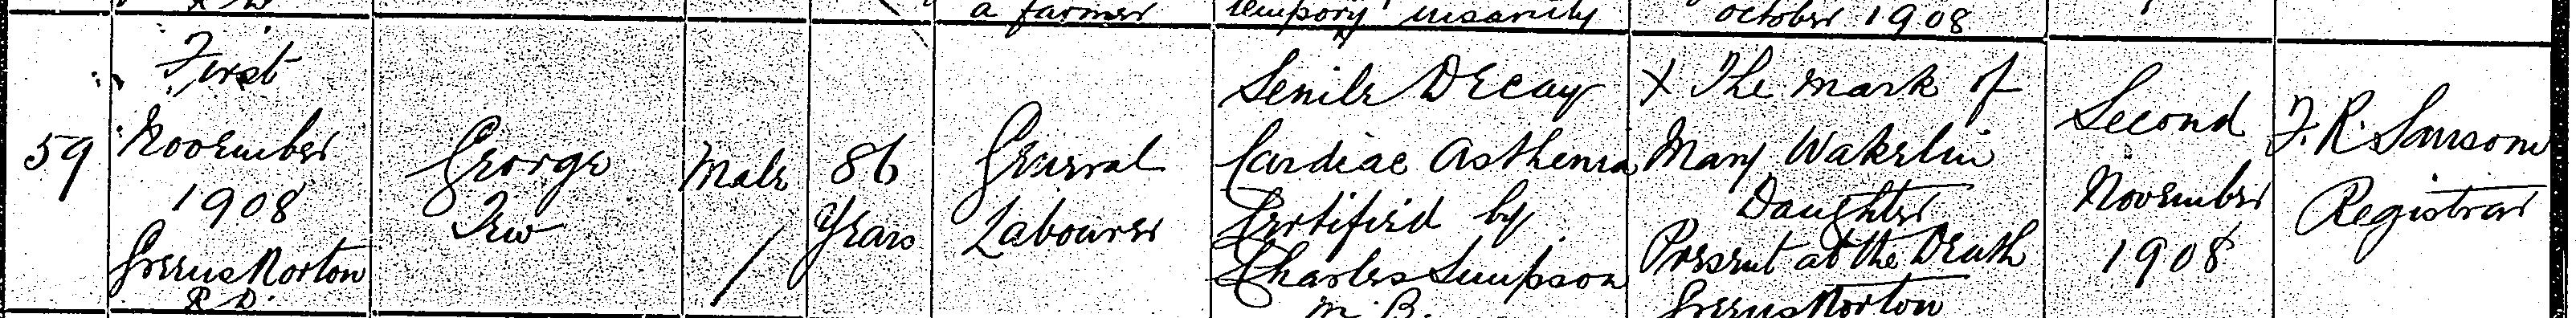 a farmer
tempory insanity
October 1908
59
First
November
1908
Greens Norton
R.D.
George
Tew
Male
86
Years
General
Labourer
Senile Decay
Cardiac Asthenia
Certified by
Charles Simpson
M.B.
X The mark of
Mary Wakelin
Daughter
Present at the Death
Greens Norton
Second
November
1908
F. R. Sansom
Registrar